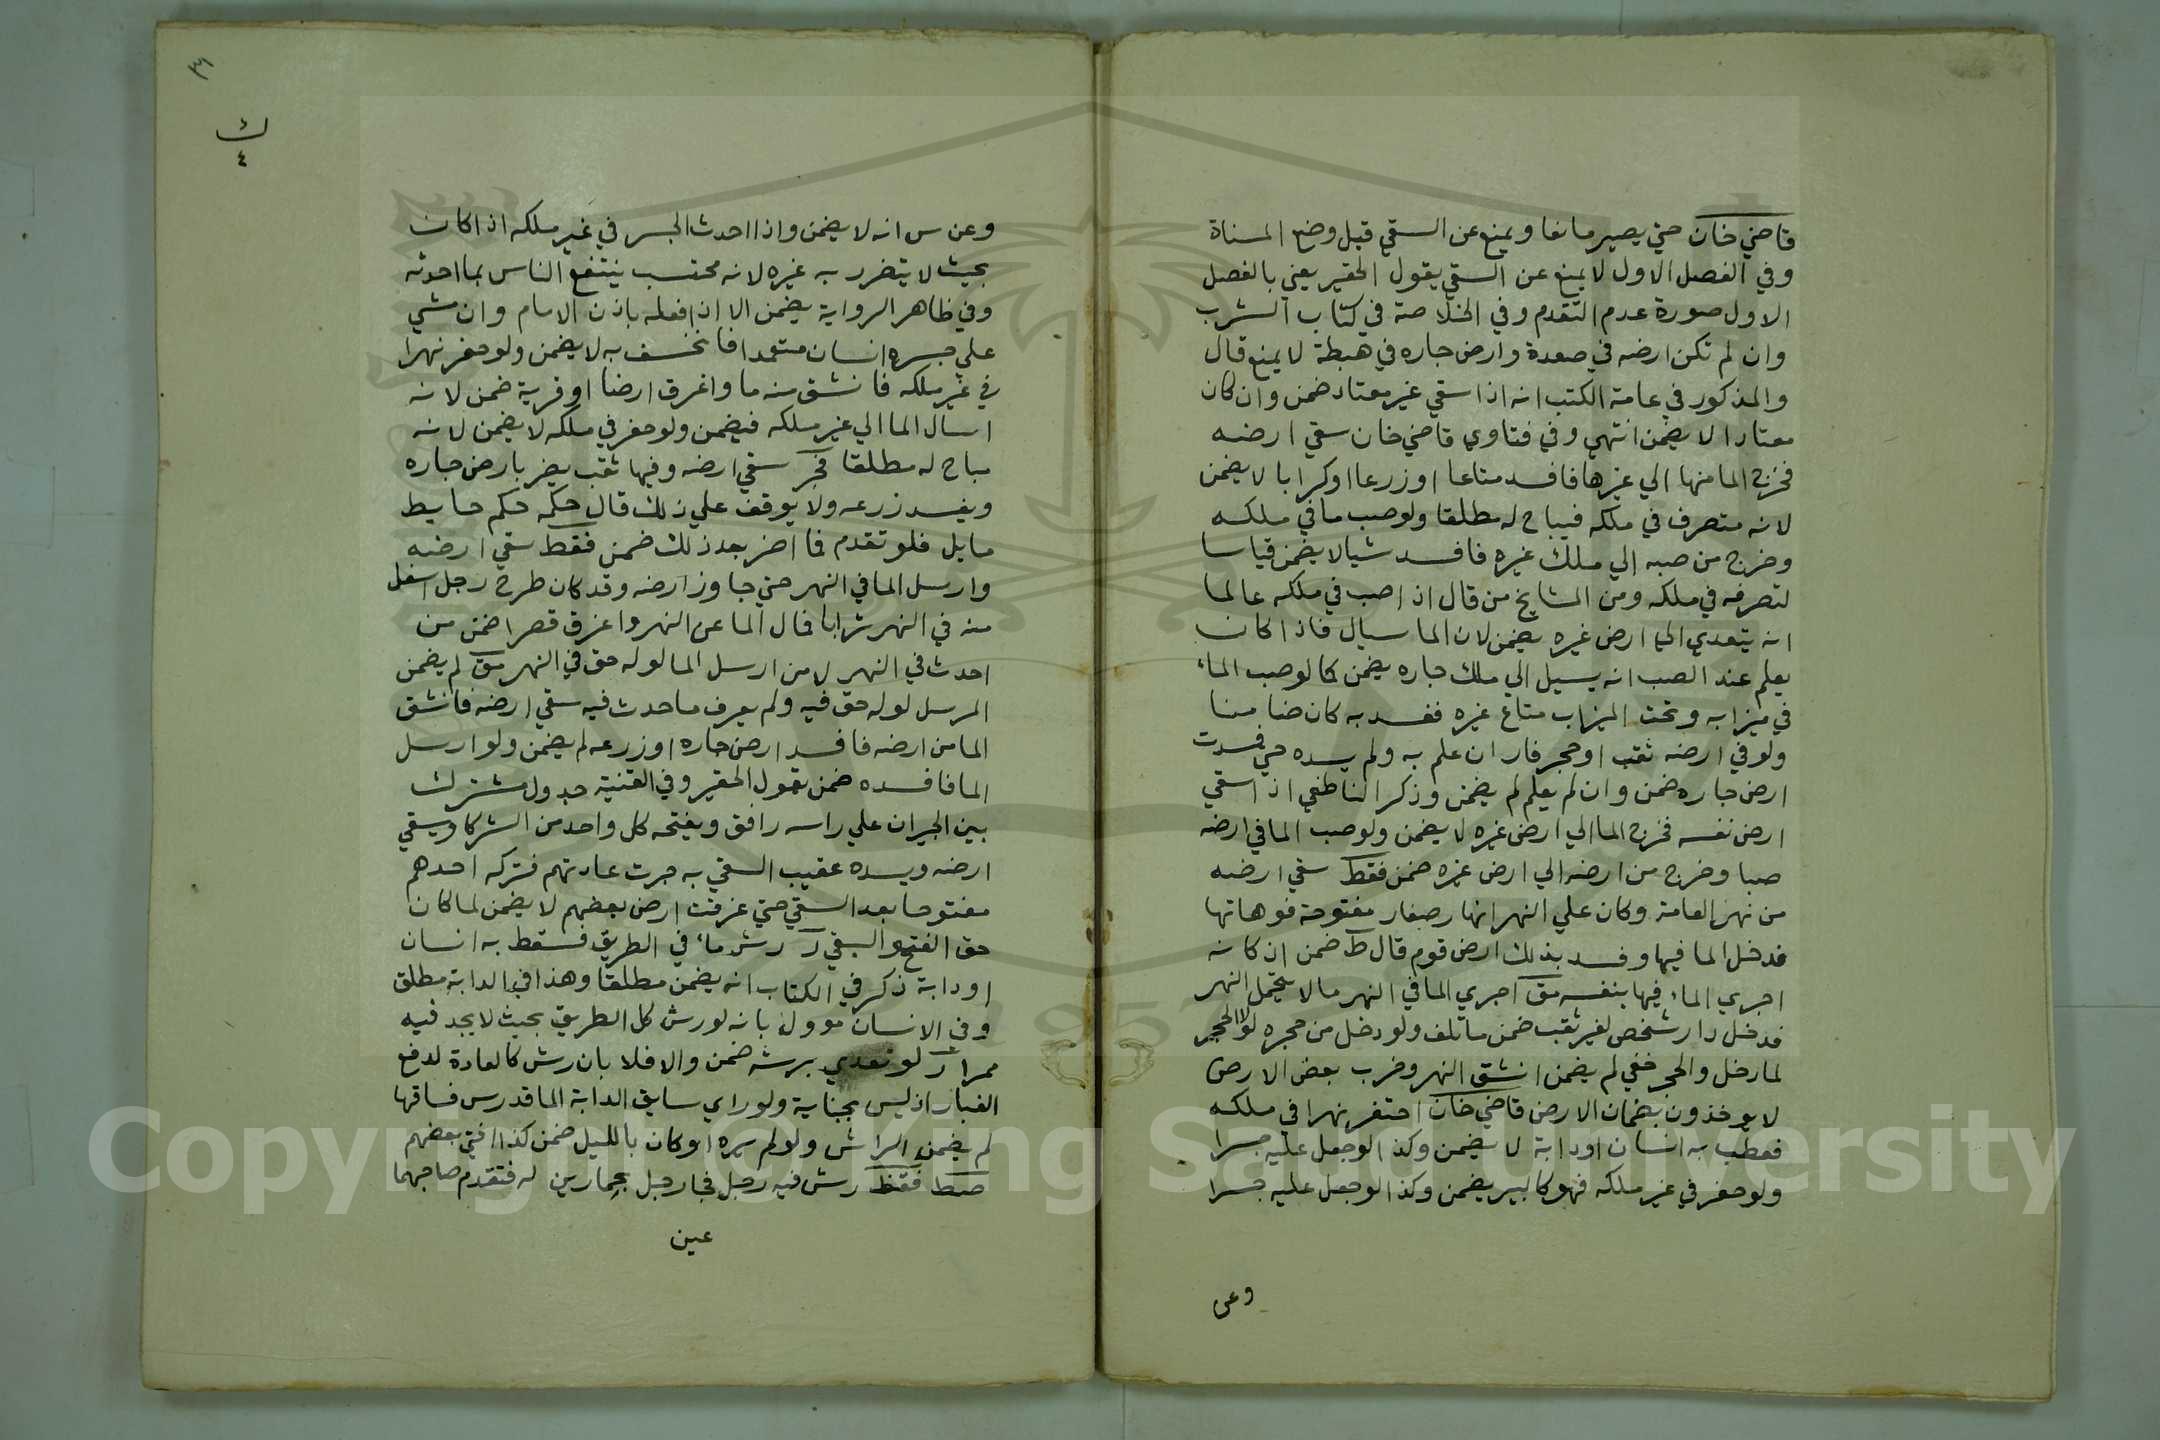 قاضي خان حتي يصير مانعا ويمنع عن السقي قبل وضع المسناة
وفي الفصل الاول لا يمنع عن السقي يقول الحقير يعني بالفصل
الاول صورة عدم التقدم وفي الخلاصة في كتاب الشرب
وان لم تكن ارضه في صعدة وارض جاره في هبطة لا يمنع قال
والمذكور في عامة الكتب انه اذا سقي غير معتاد ضمن وان كان
معتادا لا يضمن انتهي وفي فتاوي قاضي خان سقي ارضه
فخرج الما منها الي غيرها فافسد متاعا او زرعا او كرابا لا يضمن
لانه متصرف في ملكه فيباح له مطلقا ولو صب ما في ملكه
وخرج من صبه الي ملك غيره فافسد شيا لا يضمن قياسا
لتصرفه في ملكه ومن المشايخ من قال اذا صب في ملكه عالما
انه يتعدي الي ارض غيره يضمن لان الما سيال فاذا كان
يعلم عند الصب انه يسيل الي ملك جاره يضمن كما لو صب الماء
في ميزابه وتحت الميزاب متاع غيره ففسد به كان ضامنا
ولو في ارضه ثقب او جحر فار ان علم به ولم يسده حتي فسدت
ارض جاره ضمن وان لم يعلم لم يضمن وذكر الناطفي اذا سقي
ارض نفسه فخرج الما الي ارض غيره لا يضمن ولو صب الما في ارضه
صبا وخرج من ارضه الي ارض غيره ضمن فقط سقي ارضه
من نهر العامة وكان علي النهر انهار صغار مفتوحة فوهاتها
فدخل الما فيها وفسد بذلك ارض قوم قال ط ضمن اذ كانه
اجري الماء فيها بنفسه مق اجري الما في النهر ما لا يحتمل النهر
فدخل دار شخص لغير ثقب ضمن ما تلف ولو دخل من جحره لولا الجحر
لما دخل والجحر خفي لم يضمن انشق النهر وخرب بعض الارض
لا يوخذون بضمان الارض قاضي خان احتفر نهرا في ملكه
فعطب به انسان او دابة لا يضمن وكذا لو جعل عليه جسرا
ولو حفر في غير ملكه فهو كالبير يضمن وكذا لو جعل عليه جسرا
وعن
٣١
ك
٤
وعن س انه لا يضمن واذا احدث الجسر في غير ملكه اذا كان
بحيث لا يتضرر به غيره لانه محتسب ينتفع الناس بما احدثه
وفي ظاهر الرواية يضمن الا اذا فعله باذن الامام وان مشي
علي جسره انسان متعمدا فانخسف به لا يضمن ولو حفر نهرا
في غير ملكه فانشق منه ما واغرق ارضا او قرية ضمن لانه
اسال الما الي غير ملكه فيضمن ولو حفر في ملكه لا يضمن لانه
مباح له مطلقا سقي ارضه وفيها ثقب يضر بارض جاره
ويفسد زرعه ولا يوقف علي ذلك قال حكمه حكم حايط
مايل فلو تقدم فما اضر بعد ذلك ضمن فقط سقي ارضه
وارسل الما في النهر حتي جاوز ارضه وقد كان طرح رجل اسفل
منه في النهر ترابا فمال الما عن النهر واغرق قصرا ضمن من
احدث في النهر لا من ارسل الما لو له حق في النهر مق لم يضمن
المرسل لو له حق فيه ولم يعرف ما حدث فيه سقي ارضه فانشق
الما من ارضه فافسد ارض جاره او زرعه لم يضمن ولو ارسل
الما فافسده ضمن يقول الحقير وفي القنية جدول مشترك
بين الجيران علي راسه راقق ويفتحه كل واحد من الشركا ويسقي
ارضه ويسده عقيب السقي به جرت عادتهم فتركه احدهم
مفتوحا بعد السقي حتي غرقت ارض بعضهم لا يضمن لما كان
حق الفتح والسقي رش ماء في الطريق فسقط به انسان
او دابة ذكر في الكتاب انه يضمن مطلقا وهذا في الدابة مطلق
وفي الانسان موول بانه لو رش كل الطريق بحيث لا يجد فيه
ممرا لو تعدي برشه ضمن والا فلا بان رش كالعادة لدفع
الغبار اذ ليس بجناية ولو راي سايق الدابة الما قد رس فساقها
لم يضمن الراش ولو لم يره او كان بالليل ضمن كذا افتي بعضهم
صط فقظ رش فيه رجل فجا رجل بحمارين له فتقدم صاحبهما
عين
Copyright © King Saud University
1957